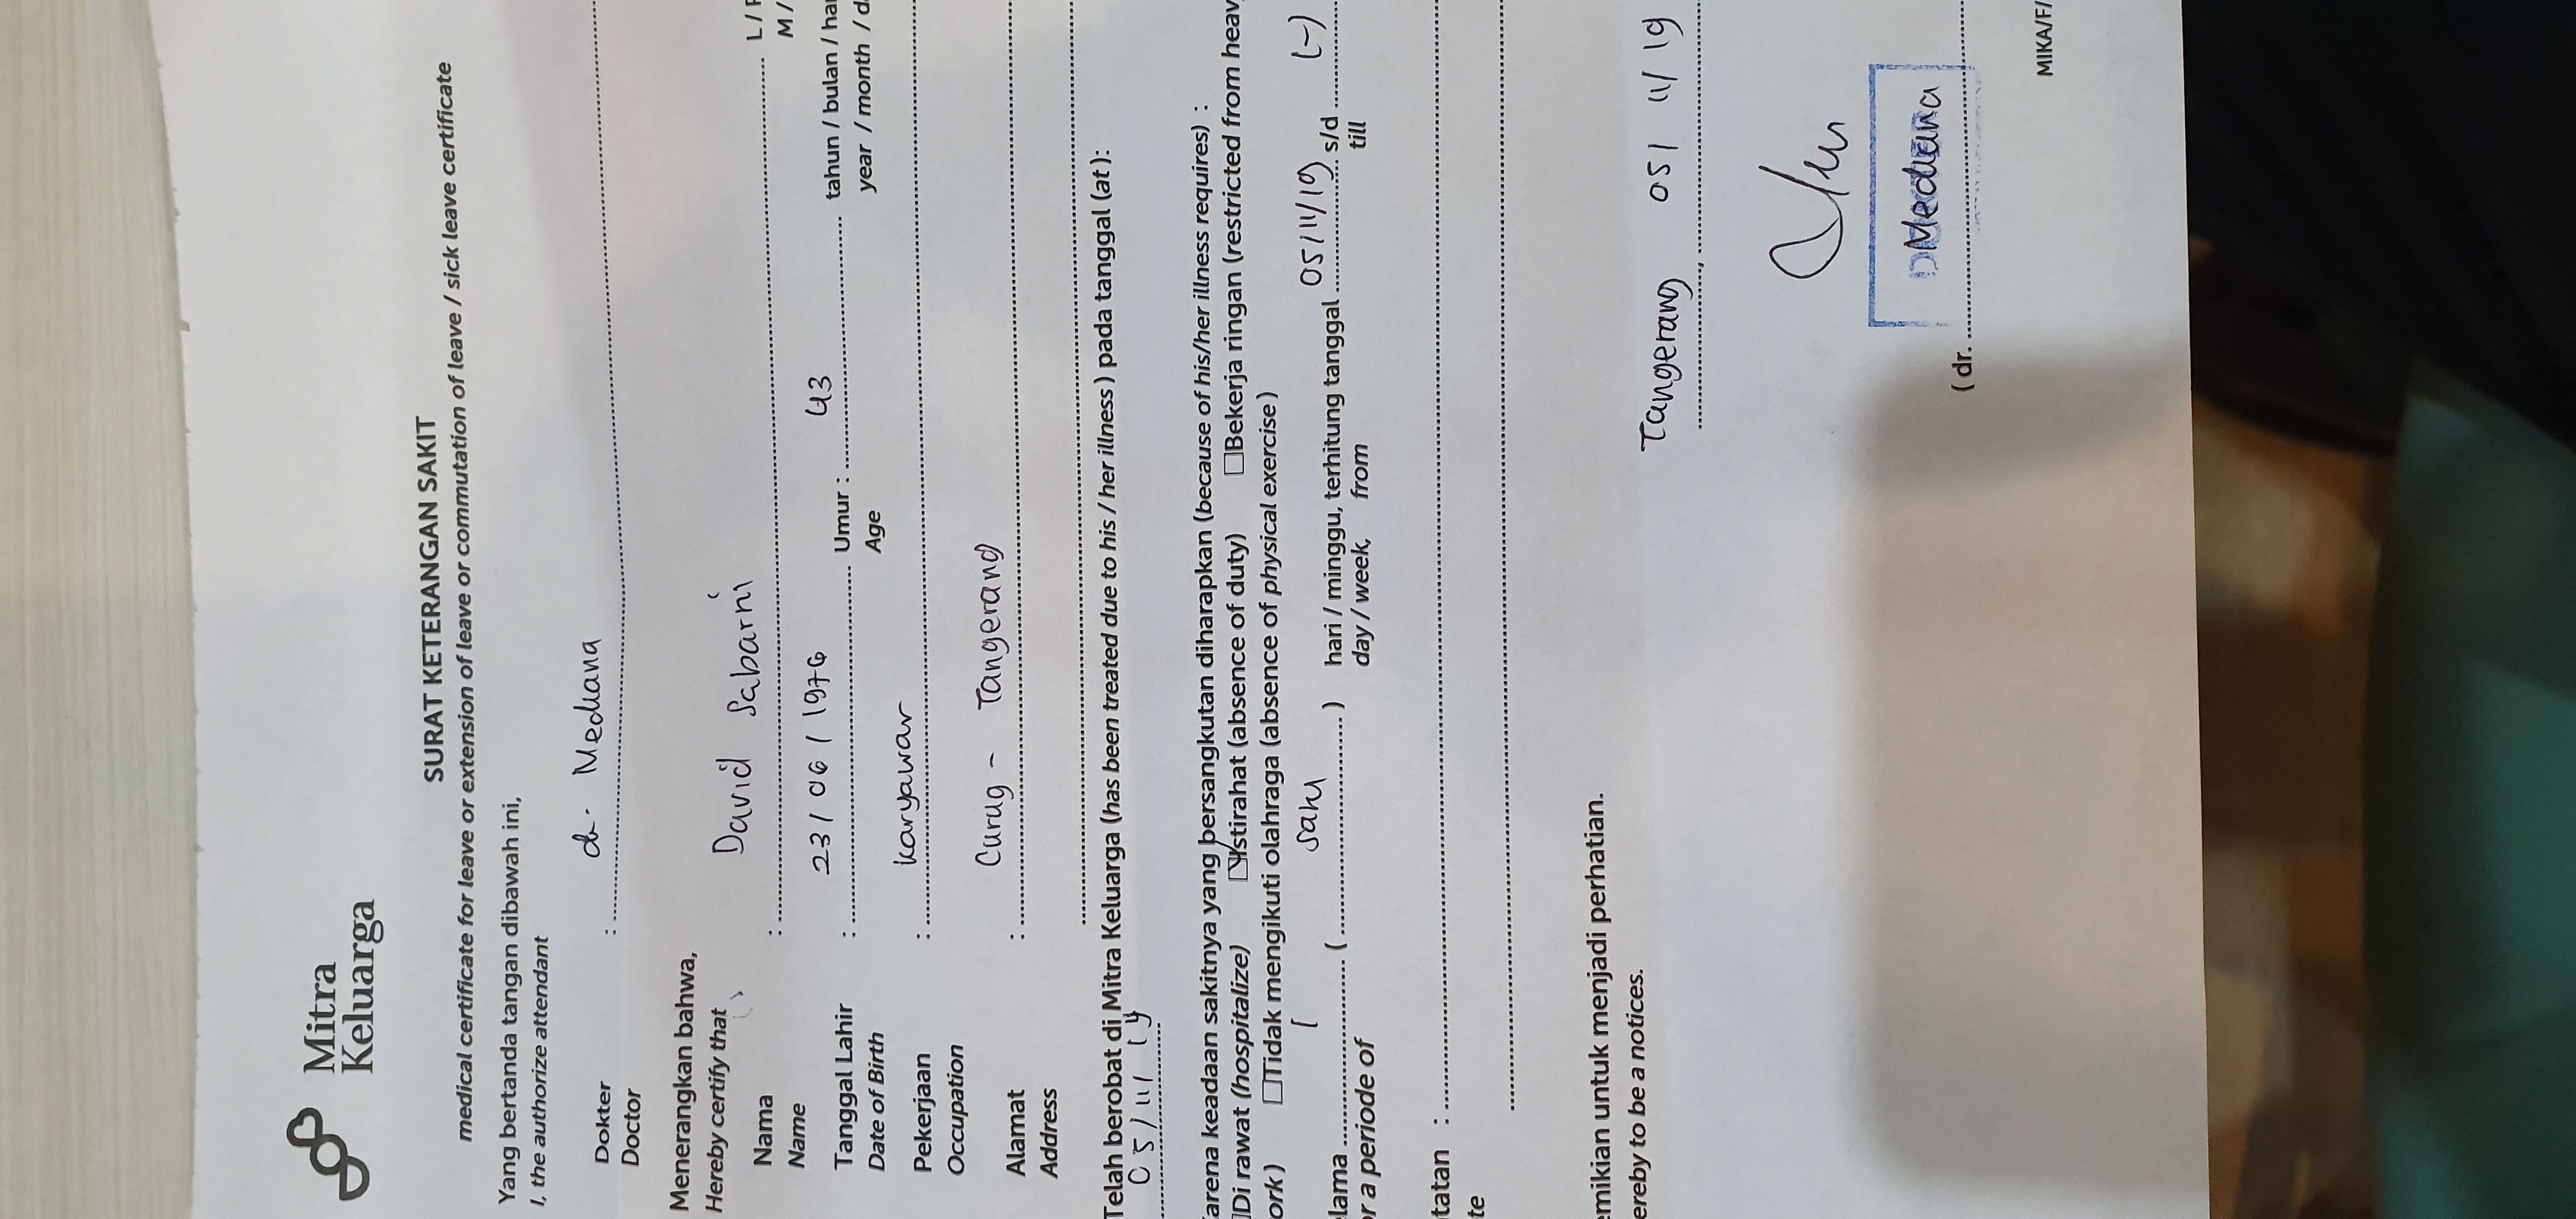 Mitra
Keluarga
SURAT KETERANGAN SAKIT
medical certificate for leave or extension of leave or commutation of leave / sick leave certificate
Yang bertanda tangan dibawah ini,
I, the authorize attendant
Dokter : dr. Mediana
Doctor
Menerangkan bahwa,
Hereby certify that
Nama : David Sabarni L /
Name M /
Tanggal Lahir : 23 / 06 / 1976 Umur : 43 tahun / bulan / har
Date of Birth Age year / month / d
Pekerjaan : karyawan
Occupation
Alamat : Curug - Tangerang
Address
Telah berobat di Mitra Keluarga (has been treated due to his / her illness) pada tanggal (at):
05/11/19
arena keadaan sakitnya yang bersangkutan diharapkan (because of his/her illness requires) :
Di rawat (hospitalize) Istirahat (absence of duty) Bekerja ringan (restricted from heav
ork) Tidak mengikuti olahraga (absence of physical exercise)
lama 1 ( satu ) hari / minggu, terhitung tanggal 05/11/19 s/d (-)
r a periode of day / week, from till
tatan :
te
emikian untuk menjadi perhatian.
ereby to be a notices.
Tangerang, 05/ 11/ 19
DOKTER
(dr. Mediana
MIKA/F/